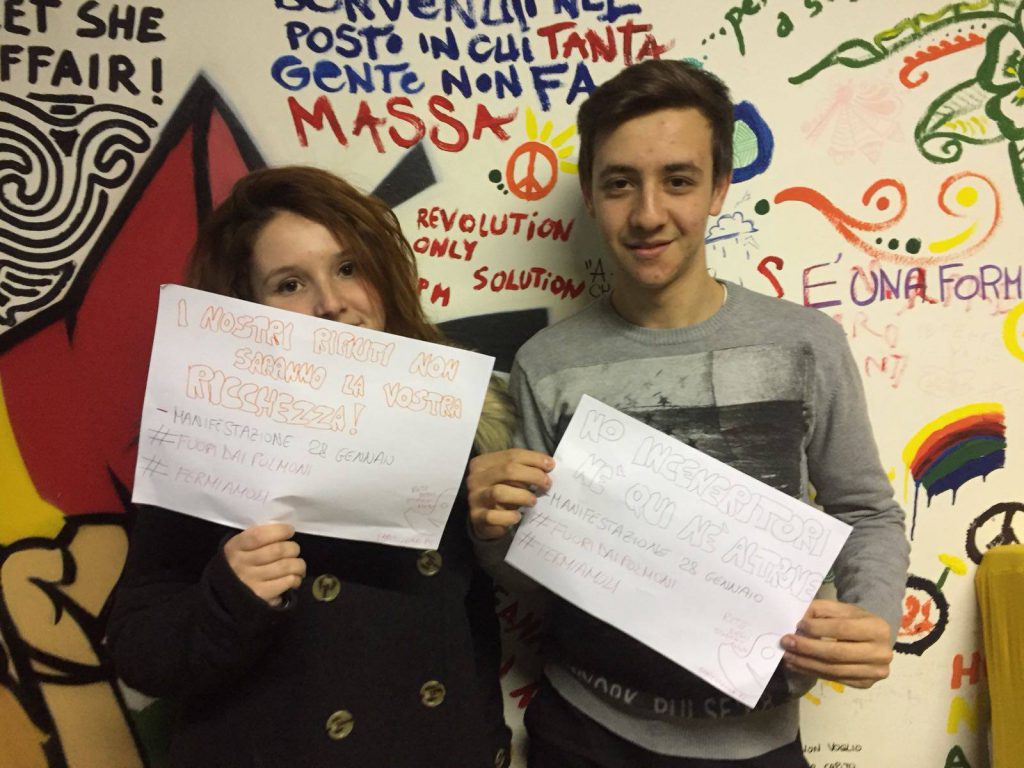 ET SHE
FFAIR!
BENVENUTI NEL
POSTO IN CUI TANTA
GENTE NON FA
MASSA
REVOLUTION
ONLY
SOLUTION
È UNA FORM
I NOSTRI RIFIUTI NON
SARANNO LA VOSTRA
RICCHEZZA!
- MANIFESTAZIONE 28 GENNAIO
#FUORIDAIPOLMONI
#FERMIAMOLI
NO INCENERITORI
NE' QUI NÈ ALTROVE
- MANIFESTAZIONE 28 GENNAIO
#FUORIDAIPOLMONI
#FERMIAMOLI
PULSE
NON VOGLIO